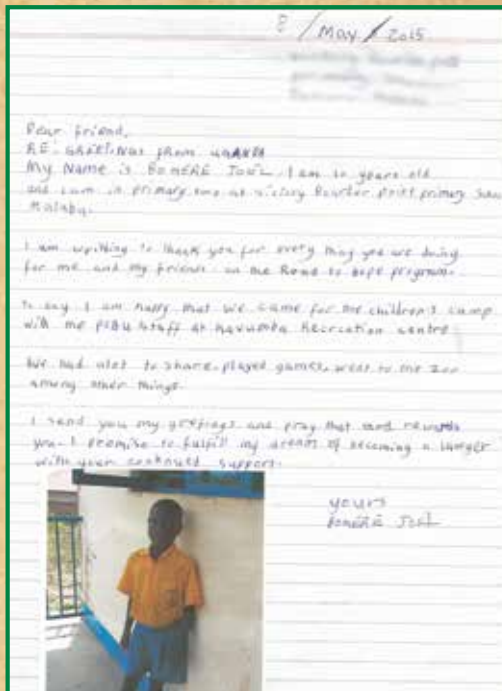 8 / May / 2015
Dear friend,
RE: GREETINGS from UGANDA
My Name is BOMERE JOEL. I am 10 years old
and I am in primary two at victory Boarder point primary School
Malaba.
I am writing to thank you for every thing you are doing
for me and my friends on the Road to hope program.
To day I am happy that we came for the children's camp
with the staff at Recreation centre
We had alot to share, played games, went to the Zoo
among other things.
I send you my greetings and pray that God rewards
you. I promise to fulfill my dream of becoming a lawyer
with your continued support.
yours
BOMERE JOEL